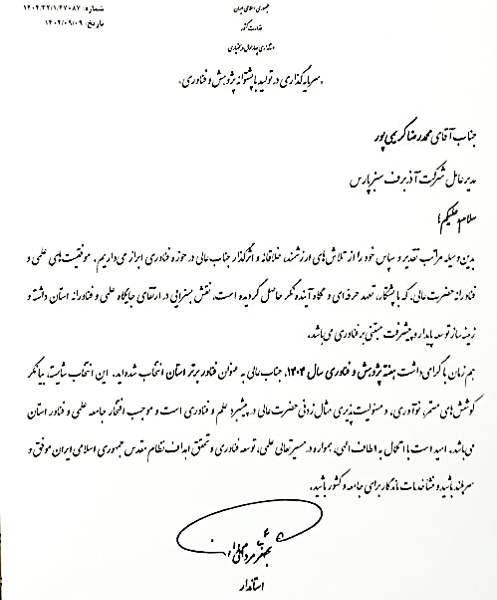 شماره: ۱۴۰۴.۳۲/۱/۴۷۰۸۷
تاریخ: ۱۴۰۴/۰۹/۰۹
جمهوری اسلامی ایران
وزارت کشور
استانداری چهارمحال و بختیاری
«سرمایه گذاری در تولید با پشتوانه پژوهش و فناوری»
جناب آقای محمدرضا کریمی پور
مدیرعامل شرکت آذربرف سبز پارس
سلام علیکم؛
بدین وسیله مراتب تقدیر و سپاس خود را از تلاش های ارزشمند، خلاقانه و اثرگذار جناب عالی در حوزه فناوری ابراز می داریم. موفقیت های علمی و
فناورانه حضرت عالی، که با پشتکار، تعهد حرفه ای و نگاه آینده نگر حاصل گردیده است، نقش بسزایی در ارتقای جایگاه علمی و فناورانه استان داشته و
زمینه ساز توسعه پایدار و پیشرفت مبتنی بر فناوری می باشد.
هم زمان با گرامی داشت هفته پژوهش و فناوری سال ۱۴۰۴، جناب عالی به عنوان فناور برتر استان انتخاب شده اید. این انتخاب شایسته، بیانگر
کوشش های مستمر، نوآوری، و مسئولیت پذیری مثال زدنی حضرت عالی در پیشبرد علم و فناوری است و موجب افتخار جامعه علمی و فناور استان
می باشد. امید است با اتکال به الطاف الهی، همواره در مسیر تعالی علمی، توسعه فناوری و تحقق اهداف نظام مقدس جمهوری اسلامی ایران موفق و
سربلند باشید و منشا خدمات ماندگار برای جامعه و کشور باشید.
جعفر مردانی
استاندار